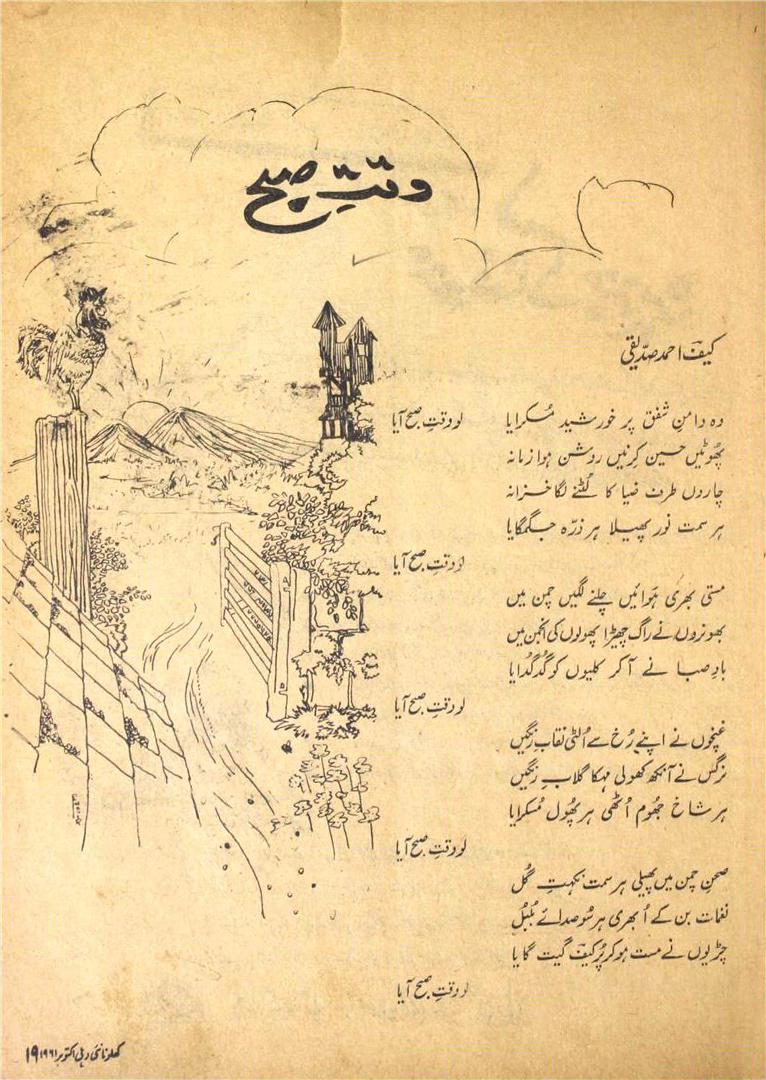 وقتِ صبح
کیفؔ احمد صدّیقی
وہ دامنِ شفق پر خورشید مُسکرایا
لو وقتِ صبح آیا
پھُوٹیں حسین کرنیں روشن ہوا زمانہ
چاروں طرف ضیا کا لُٹنے لگا خزانہ
ہر سمت نور پھیلا ہر ذرّہ جگمگایا
لو وقتِ صبح آیا
مستی بھری ہَوائیں چلنے لگیں چمن میں
بھونروں نے راگ چھیڑا پھولوں کی انجمن میں
بادِ صبا نے آ کر کلیوں کو گُدگُدایا
لو وقتِ صبح آیا
غنچوں نے اپنے رُخ سے اُلٹی نقاب رنگیں
نرگس نے آنکھ کھولی مہکا گلابِ رنگیں
ہر شاخ جھُوم اُٹھی ہر پھُول مُسکرایا
لو وقتِ صبح آیا
صحنِ چمن میں پھیلی ہر سمت نکہتِ گُل
نغمات بن کے اُبھری ہر سُو صدائے بُلبُل
چڑیوں نے مست ہو کر پُرکیفؔ گیت گایا
لو وقتِ صبح آیا
کھلونا نئی دہلی اکتوبر ۱۹۶۱ ۱۹